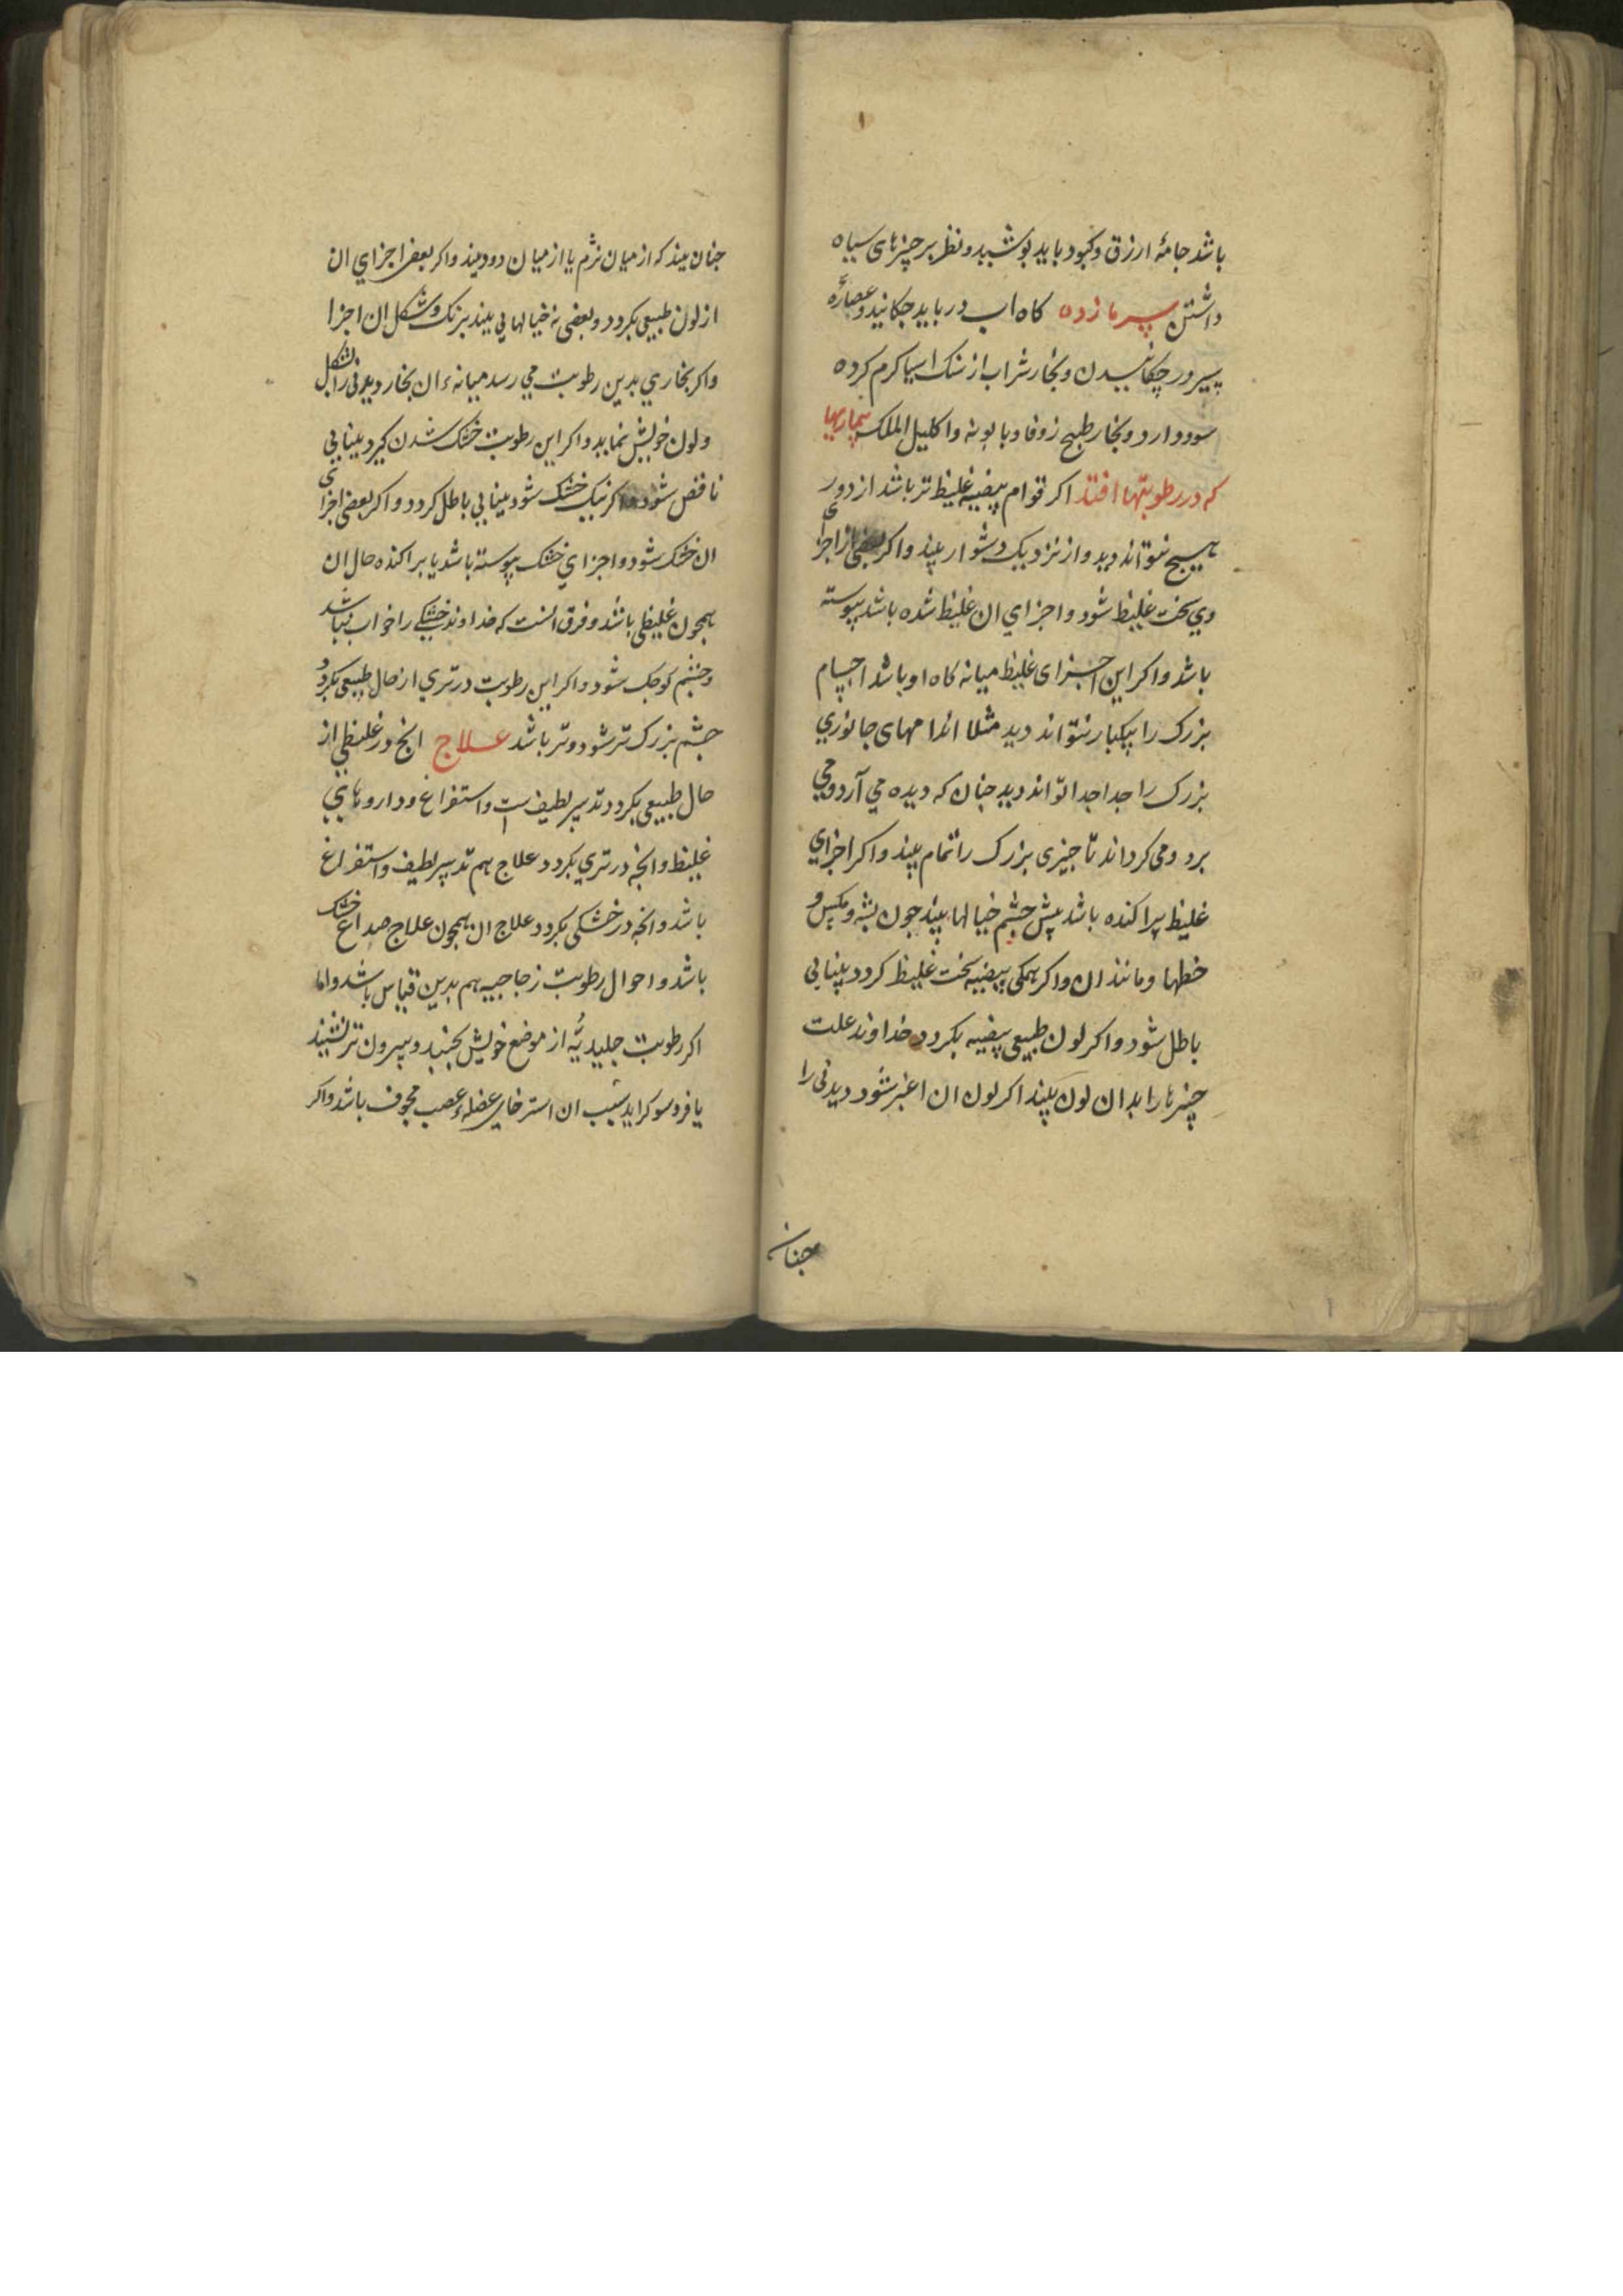 باشد جامۀ ازرق و کبود باید پوشید و نظر بر چیزهای سیاه
داشتن سرمازده کاه اب در باید چکانید و عصارۀ
سیر در چکانیدن و بخار شراب از سنک اسیا کرم کرده
سود دارد و بخار طبیخ زوفا و بابونه و اکلیل الملک بیماریها
که در رطوبتها افتد اکر قوام بیضیه غلیظ تر باشد از دور
هیچ نتواند دید و از نزدیک دشوار بیند و اکر بعضی از اجزای
وی سخت غلیظ شود و اجزای ان غلیظ شده باشد پیوسته
باشد و اکر این اجزای غلیظ میانه کاه او باشد اجسام
بزرک را بیکبار نتواند دید مثلا اندامهای جانوری
بزرک را جدا جدا تواند دید جنان که دیده می آرد و می
برد و می کرداند تا جیزی بزرک را تمام بیند و اکر اجزای
غلیظ پراکنده باشد پیش جشم خیالها بیند جون پشه و مکس و
خطها و مانند ان و اکر همکی بیضیه سخت غلیظ کردد بینایی
باطل شود و اکر لون طبیعی بیضیه بکردد خداوند علت
چیزها را بدان لون بیند اکر لون ان اغبر شود دیدنی را
جنان
جنان بیند که از میان نژم یا از میان دود بیند و اکر بعضی اجزای ان
از لون طبیعی بکردد و بعضی نه خیالهایی بیند برنک و شکل ان اجزا
و اکر بخاری بدین رطوبت می رسد میانهء ان بخار دیدنی را بشکل
و لون خویش نماید و اکر این رطوبت خشک شدن کیرد بینایی
ناقص شود و اکر نیک خشک شود بینایی باطل کردد و اکر بعضی اجزای
ان خشک شود و اجزای خشک پیوسته باشد یا پراکنده حال ان
همچون غلیظی باشد و فرق انست که خداوند خشکی را خواب نباشد
و جشم کوجک شود و اکر این رطوبت در تری از حال طبیعی بکردد
جشم بزرک تر شود و تر باشد علاج انج در غلیظی از
حال طبیعی بکردد تدبیر لطیف است و استفراغ و داروهای
غلیظ و انجه در تری بکردد علاج هم تدبیر لطیف و استفراغ
باشد و انجه در خشکی بکردد علاج ان همچون علاج صداع خشک
باشد و احوال رطوبت زجاجیه هم بدین قیاس باشد و اما
اکر رطوبت جلیدیّه از موضع خویش بجنبد و بیرون تر نشیند
یا فروسو کراید سبب ان استرخای عضلهء عصب مجوف باشد و اکر